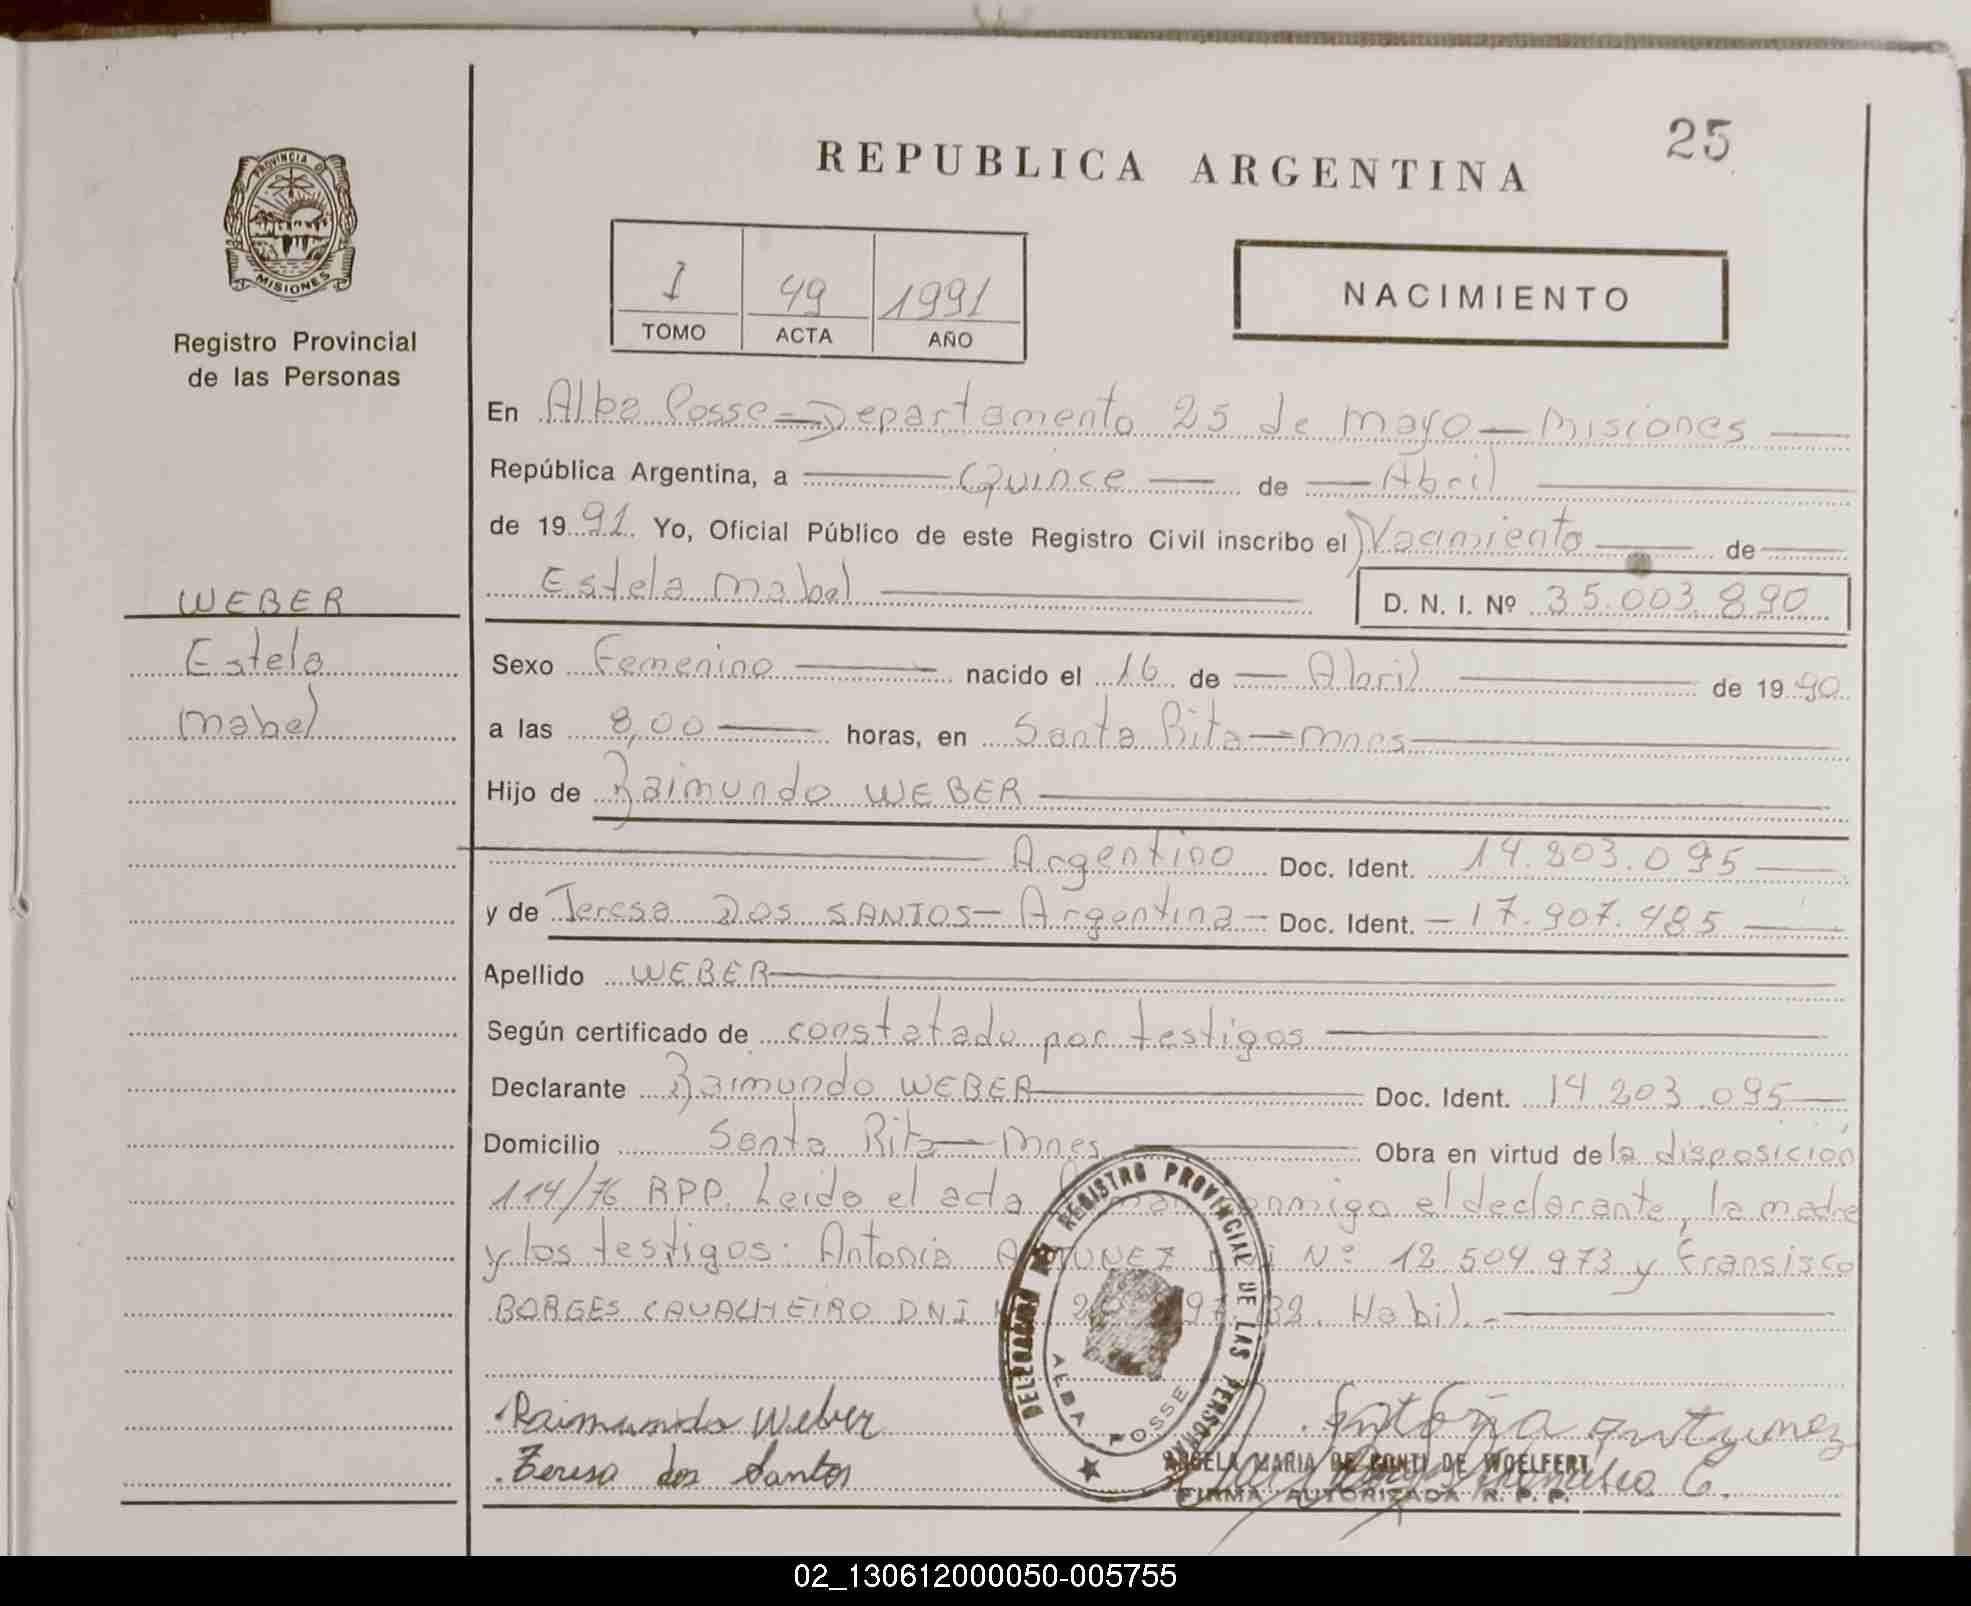 25
REPUBLICA ARGENTINA
PROVINCIA DE
MISIONES
Registro Provincial
de las Personas
I 49 1991
TOMO ACTA AÑO
NACIMIENTO
En Alba Posse - Departamento 25 de Mayo - Misiones
República Argentina, a Quince de Abril
de 1991. Yo, Oficial Público de este Registro Civil inscribo el Nacimiento de
Estela Mabel
D. N. I. Nº 35.003.890
WEBER
Estela
Mabel
Sexo Femenino nacido el 16 de Abril de 1990
a las 8,00 horas, en Santa Rita - Mnes
Hijo de Raimundo WEBER
Argentino Doc. Ident. 14.203.095
y de Teresa DOS SANTOS - Argentina - Doc. Ident. - 17.907.485
Apellido WEBER
Según certificado de constatado por testigos
Declarante Raimundo WEBER Doc. Ident. 14 203.095
Domicilio Santa Rita - Mnes Obra en virtud de la disposición
114/76 RPP. Leido el acta conmigo el declarante, la madre
y los testigos: Antonia Nº 12.504.973 y Fransisco
BORGES CAVALHEIRO DNI Habil.-
DELEGACION DEL REGISTRO PROVINCIAL DE LAS PERSONAS
ALBA POSSE
Raimundo Weber
Teresa dos Santos
Antoña
ANGELA MARIA DE CONTI DE WOELFERT
FIRMA AUTORIZADA R. P. P.
02_130612000050-005755